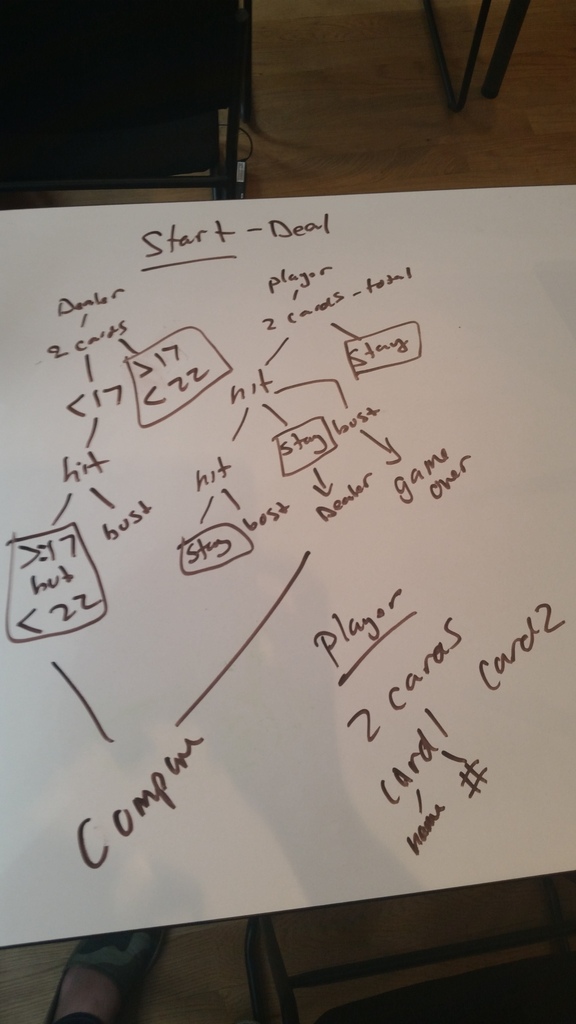 Start - Deal
Dealer
2 cards
<17
>17
<22
hit
>=17
but
<22
bust
player
2 cards - total
hit
Stay
hit
Stay
bust
Stay
bust
Dealer
game
over
Compare
player
2 cards
card1
card2
name
#